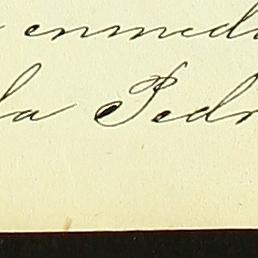 enmedi
la Pedr